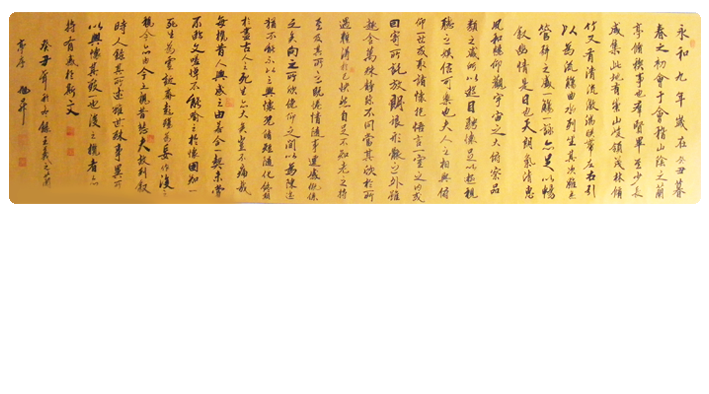 永和九年歲在癸丑暮
春之初會于會稽山陰之蘭
亭脩稧事也羣賢畢至少長
咸集此地有崇山峻領茂林脩
竹又有清流激湍暎帶左右引
以為流觴曲水列坐其次雖無
管弦之盛一觴一詠亦足以暢
敘幽情是日也天朗氣清惠
風和暢仰觀宇宙之大俯察品
類之盛所以遊目騁懷足以極視
聽之娛信可樂也夫人之相與俯
仰一世或取諸懷抱悟言一室之內或
因寄所託放浪形骸之外雖
趣舍萬殊靜躁不同當其欣於所
遇暫得於己快然自足不知老之將
至及其所之既惓情隨事遷感慨係
之矣向之所欣俛仰之間以為陳迹
猶不能不以之興懷況脩短隨化終期
於盡古人云死生亦大矣豈不痛哉
每攬昔人興感之由若合一契未嘗
不臨文嗟悼不能喻之於懷固知一
死生為虛誕齊彭殤為妄作後之
視今亦由今之視昔悲夫故列敘
時人錄其所述雖世殊事異所
以興懷其致一也後之攬者亦
將有感於斯文
癸丑年 錄王羲之蘭
亭序